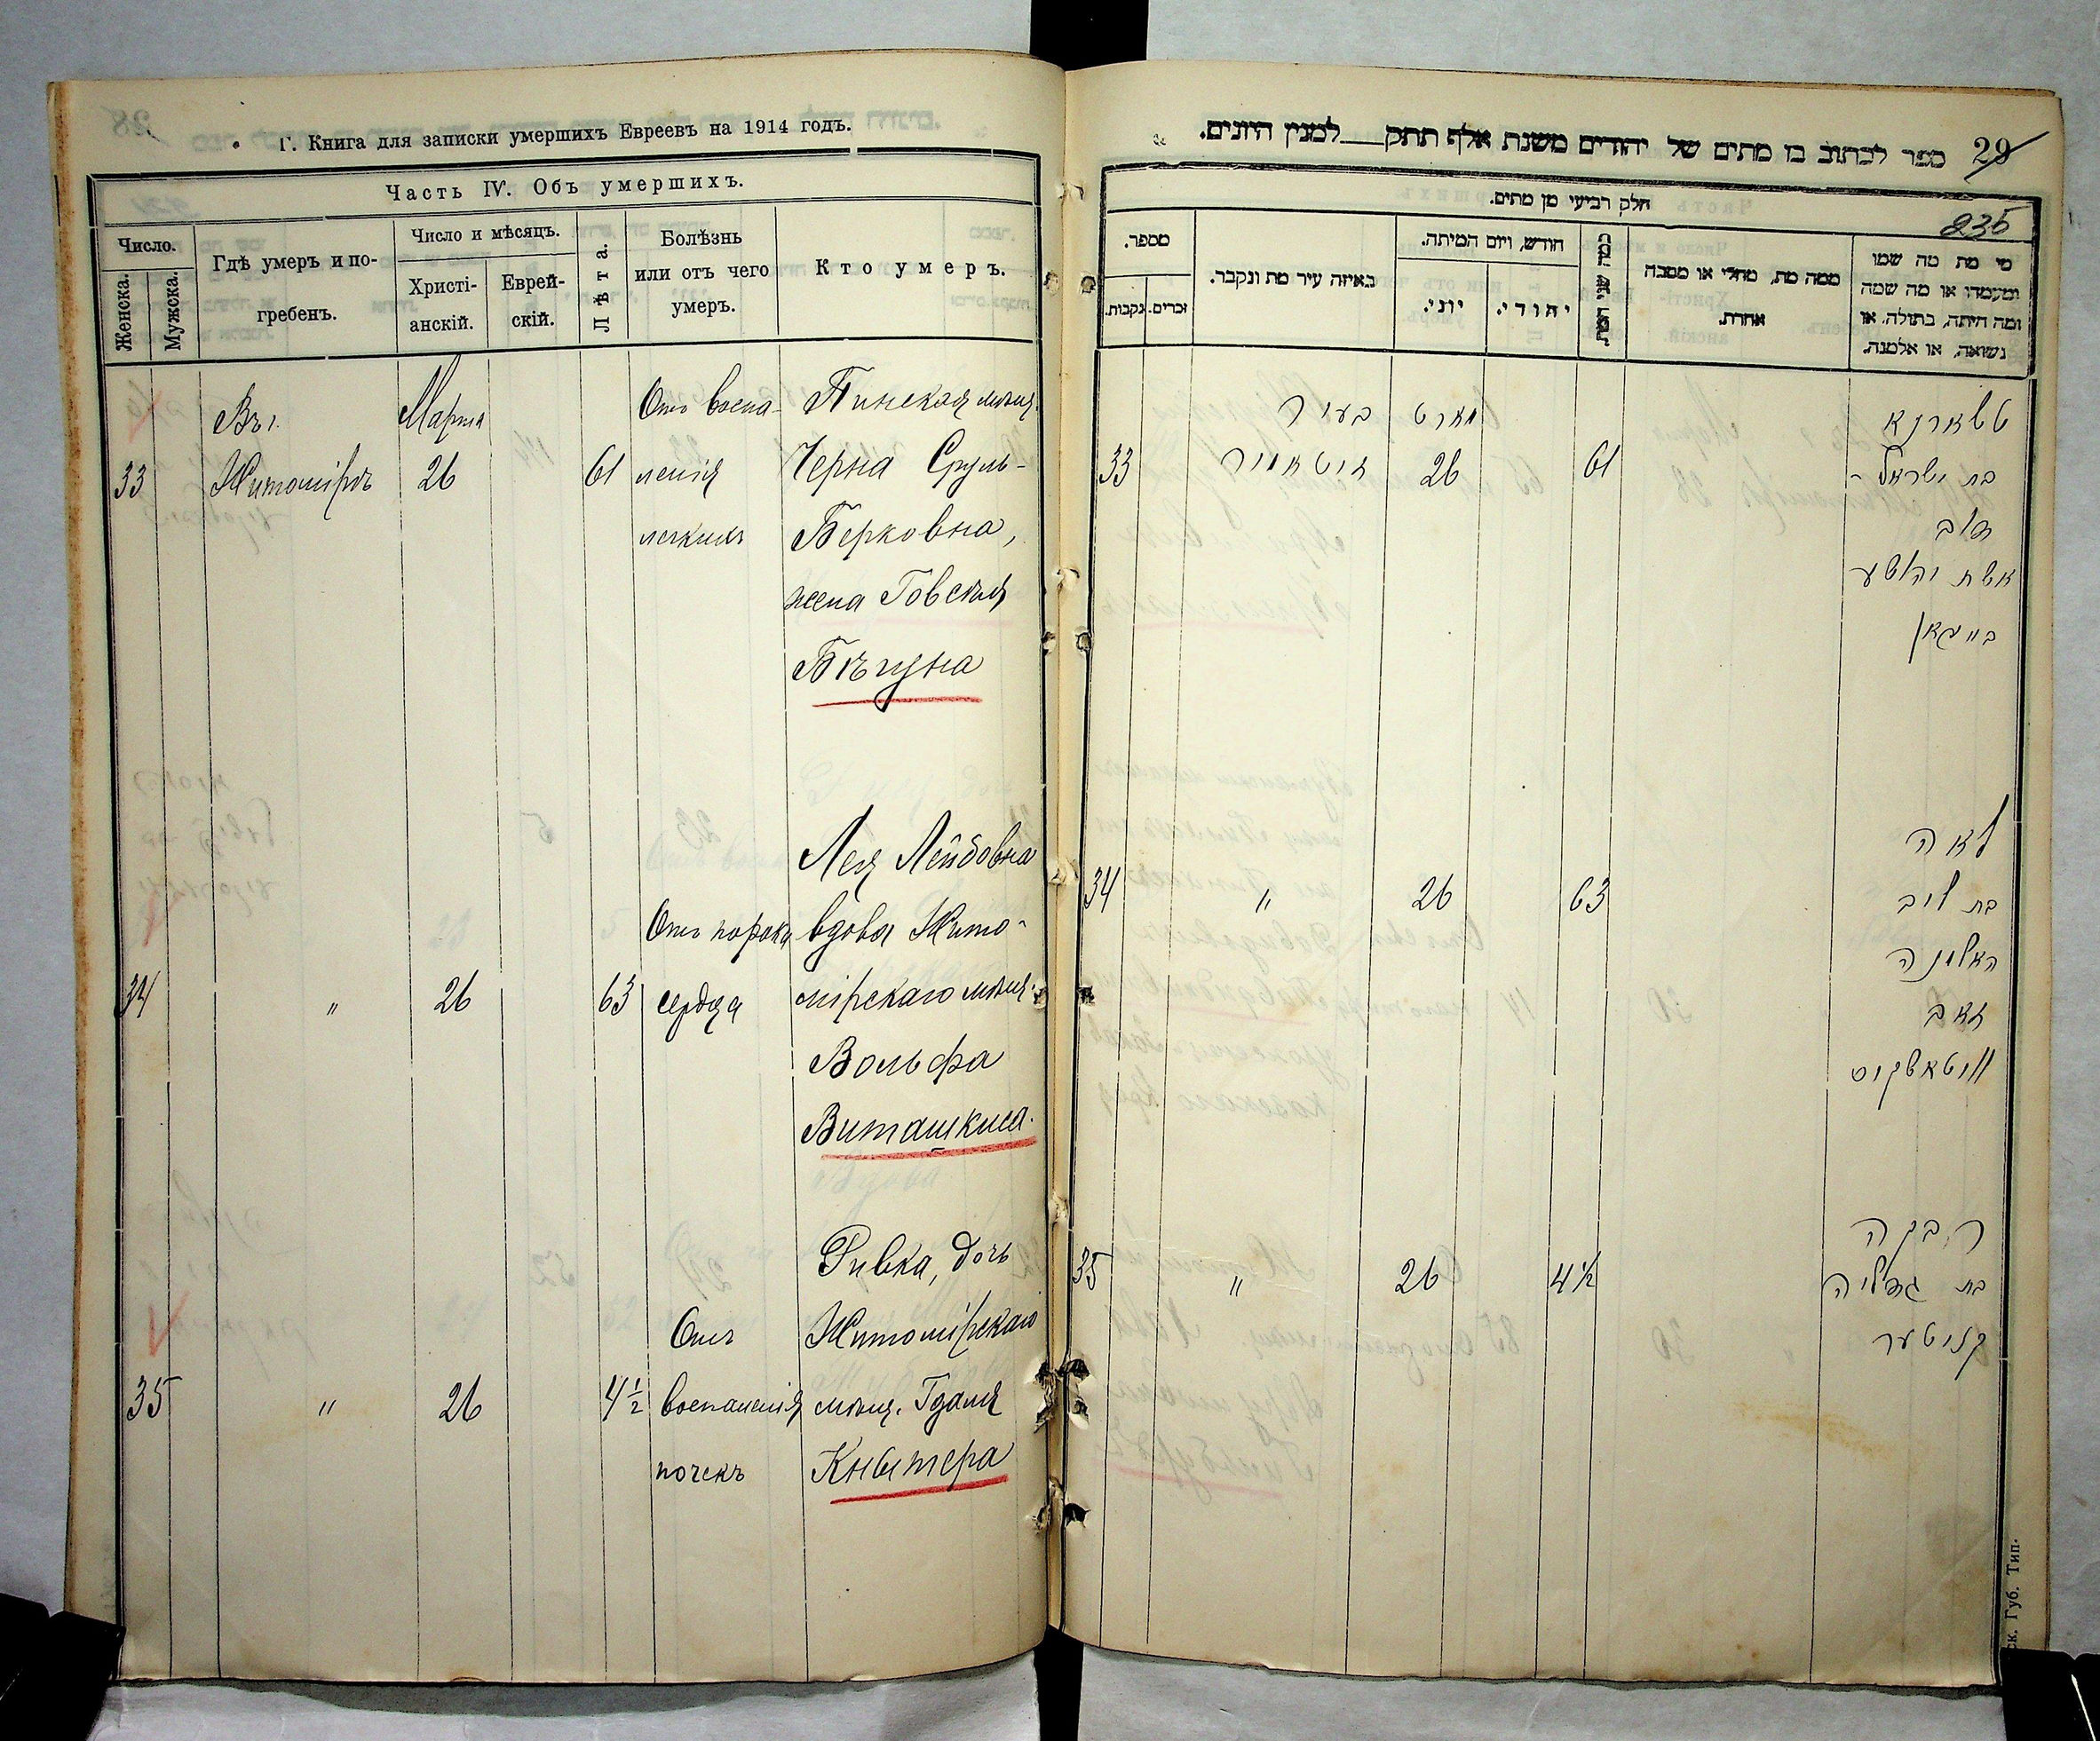 Г. Книга для записки умершихъ Евреевъ на 1914 годъ.
Часть IV. Объ умершихъ.
Число.
Женска.
Мужска.
Гдѣ умеръ и по-
гребенъ.
Число и мѣсяцъ.
Христі-
анскій.
Еврей-
скій.
Лѣта.
Болѣзнь
или отъ чего
умеръ.
Кто умеръ.
33
Въ г.
Житомірѣ
Марта
26
61
Отъ воспа-
ленія
легкихъ
Пинская мѣщ.
Черна Сруль-
Берковна,
жена Говсѣя
Бѣгуна
34
"
26
63
Отъ порока
сердца
Лея Лейбовна
вдова Жито-
мірскаго мѣщ.
Вольфа
Виташкиса.
35
"
26
4 1/2
Отъ
воспаленія
почекъ
Ривка, дочь
Житомірскаго
мѣщ. Гдаля
Кнытера
ספר לכתוב בו מתים של יהודים משנת אלף תתק למנין היונים.
29
235
חלק רביעי מן מתים.
מספר.
נקבות.
זכרים.
באיזה עיר מת ונקבר.
חודש, ויום המיתה.
יוני.
יהודי.
כמה שני המת.
ממה מת, מחלי או מסבה
אחרת.
מי מת מה שמו
ומעמדו או מה שמה
ומה היתה, בתולה, או
נשואה, או אלמנה.
33
בעיר
זיטאמיר
מארט
26
61
טשארנא
בת ישראל -
דוב
אשת יהושע
בייגאן
34
"
26
63
לאה
בת ליב
האלמנה
זאב
וויטאשקיס
35
"
26
4 1/2
רבקה
בת גדליה
קניטער
ск. Губ. Тип.